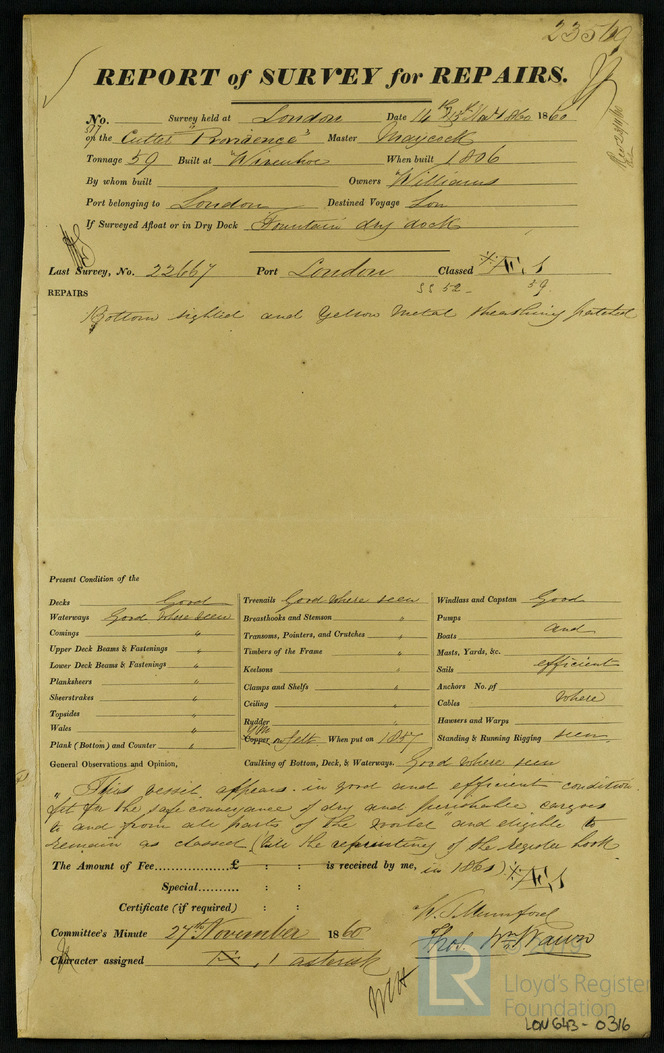 23569
REPORT of SURVEY for REPAIRS.
No. Survey held at London Date 14th & 15th Novr 1860 1860
577
on the Cutter "Providence" Master Maycock
Tonnage 59 Built at Wivenhoe When built 1806
By whom built Owners Williams
Port belonging to London Destined Voyage Lon
If Surveyed Afloat or in Dry Dock Fountain dry dock
Last Survey, No. 22667 Port London Classed Æ 1
SS 52 - 59
REPAIRS
Bottom sighted and Yellow Metal sheathing patched
Present Condition of the
Decks Good
Waterways Good where seen
Comings "
Upper Deck Beams & Fastenings "
Lower Deck Beams & Fastenings "
Planksheers "
Sheerstrakes "
Topsides "
Wales "
Plank (Bottom) and Counter "
Treenails Good where seen
Breasthooks and Stemson "
Transoms, Pointers, and Crutches "
Timbers of the Frame "
Keelsons "
Clamps and Shelfs "
Ceiling "
Rudder "
YM
Copper on felt When put on 1857
Windlass and Capstan Good
Pumps
Boats and
Masts, Yards, &c.
Sails efficient
Anchors No. of
Cables where
Hawsers and Warps
Standing & Running Rigging seen
General Observations and Opinion, Caulking of Bottom, Deck, & Waterways. Good where seen
"This vessel appears in good and efficient condition
fit for the safe conveyance of dry and perishable cargoes
to and from all parts of the World" and eligible to
remain as classed (vide the reprinting of the register book
The Amount of Fee................£ : : is received by me, in 1860) Æ 1
Special.......... : :
Certificate (if required) : :
W. J. Mumford
Committee's Minute 27th November 1860
Thos Wm Wawn
Character assigned , 1 asterisk
LR
Lloyd's Register
Foundation
LON643-0316